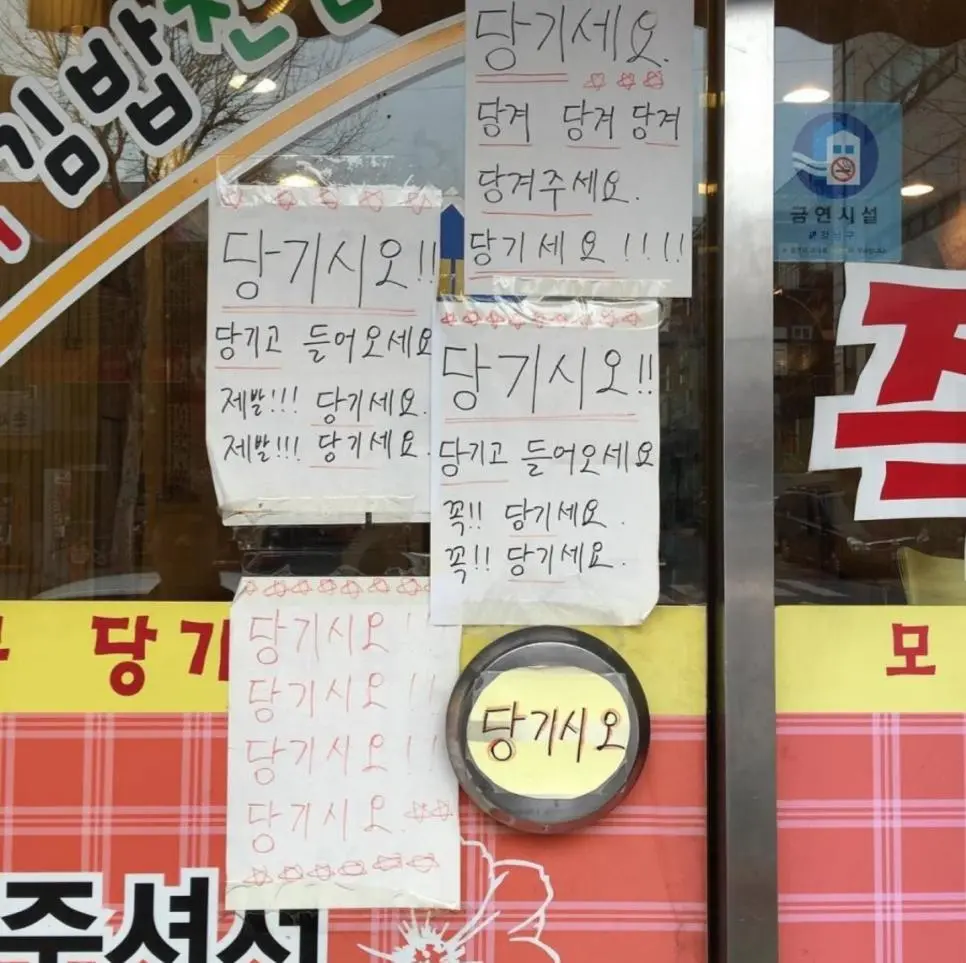 김밥천
당기세요.
당겨 당겨 당겨
당겨주세요.
당기세요!!!!
금연시설
당기시오!!
당기고 들어오세요
제발!!! 당기세요.
제발!!! 당기세요.
당기시오!!
당기고 들어오세요
꼭!! 당기세요.
꼭!! 당기세요.
당기
모
당기시오!!
당기시오!!
당기시오!!
당기시오.
당기시오
주셔서